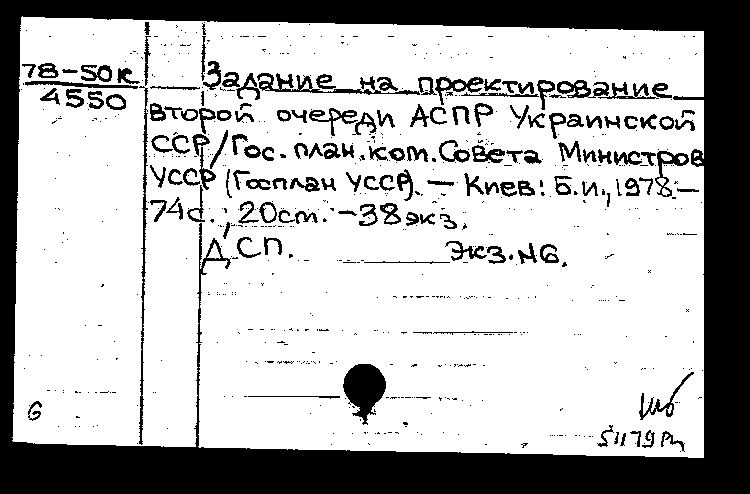 78-50к
4550
Задание на проектирование
второй очереди АСПР Украинской
ССР/Гос. план. ком. Совета Министров
УССР (Госплан УССР). — Киев: Б.и., 1978.—
74с.; 20см. -38экз.
ДСП. Экз. N6.
6